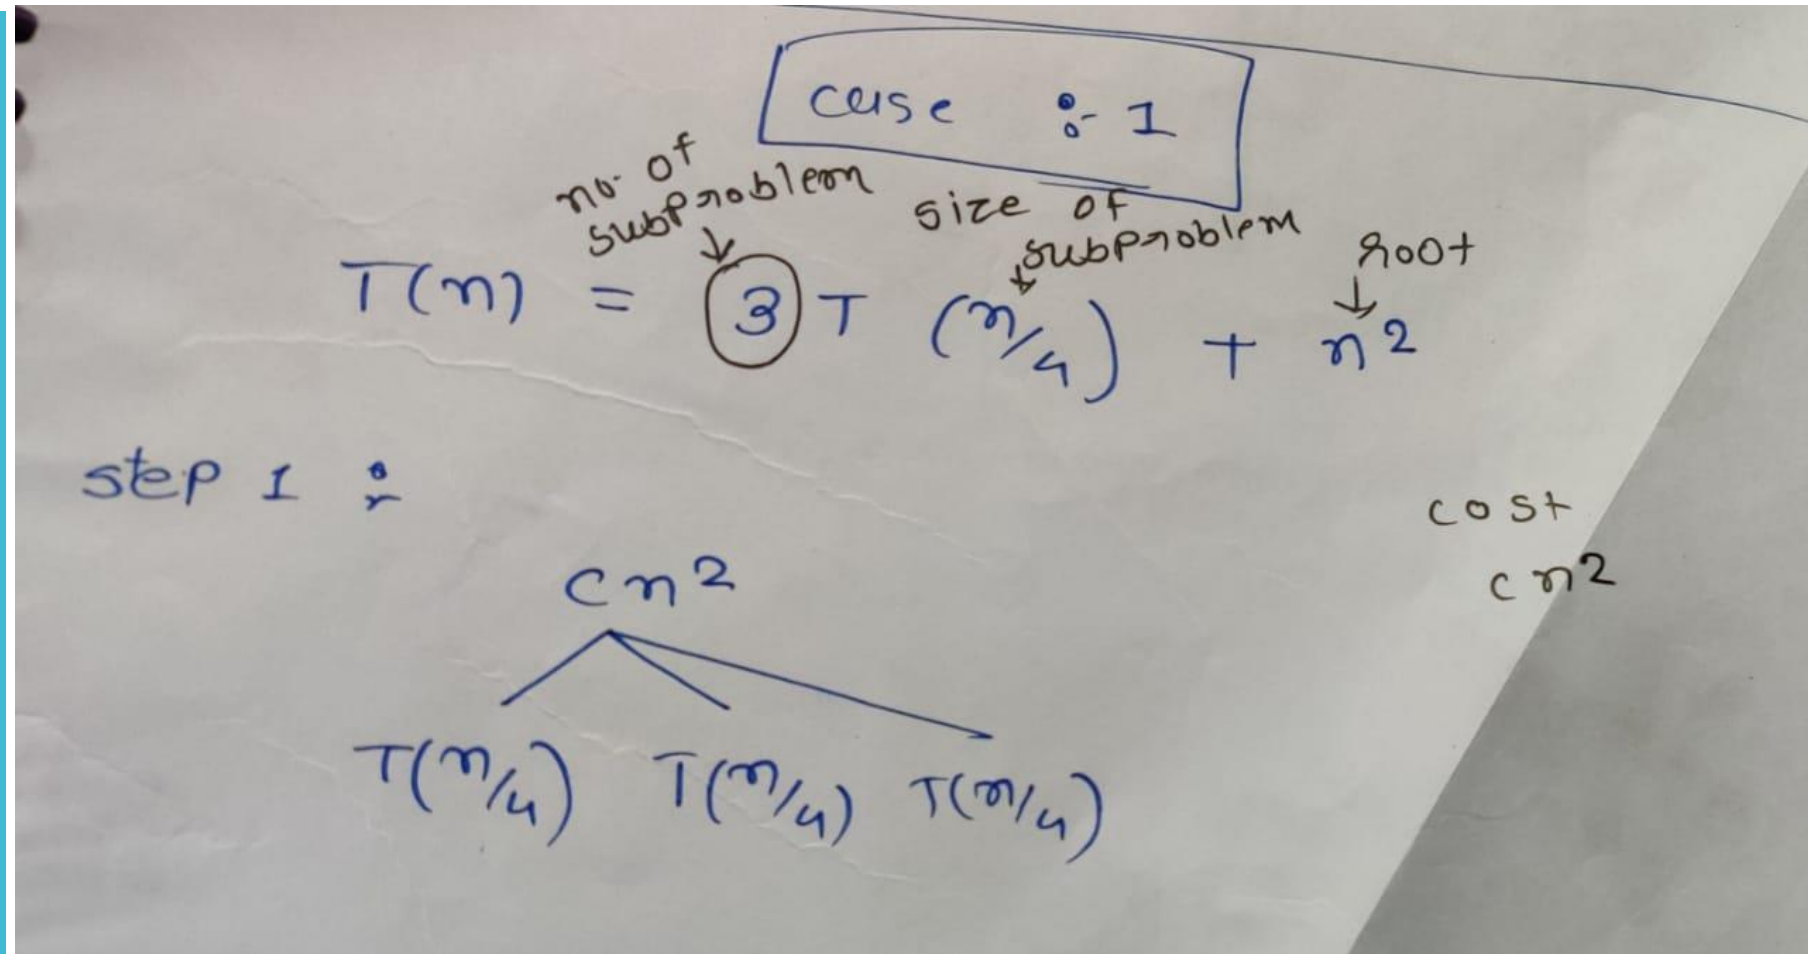 case :- 1
no. of
subproblem
size of
subproblem
root
T(n) = 3 T (n/4) + n2
step 1 :
cost
cn2
cn2
T(n/4) T(n/4) T(n/4)